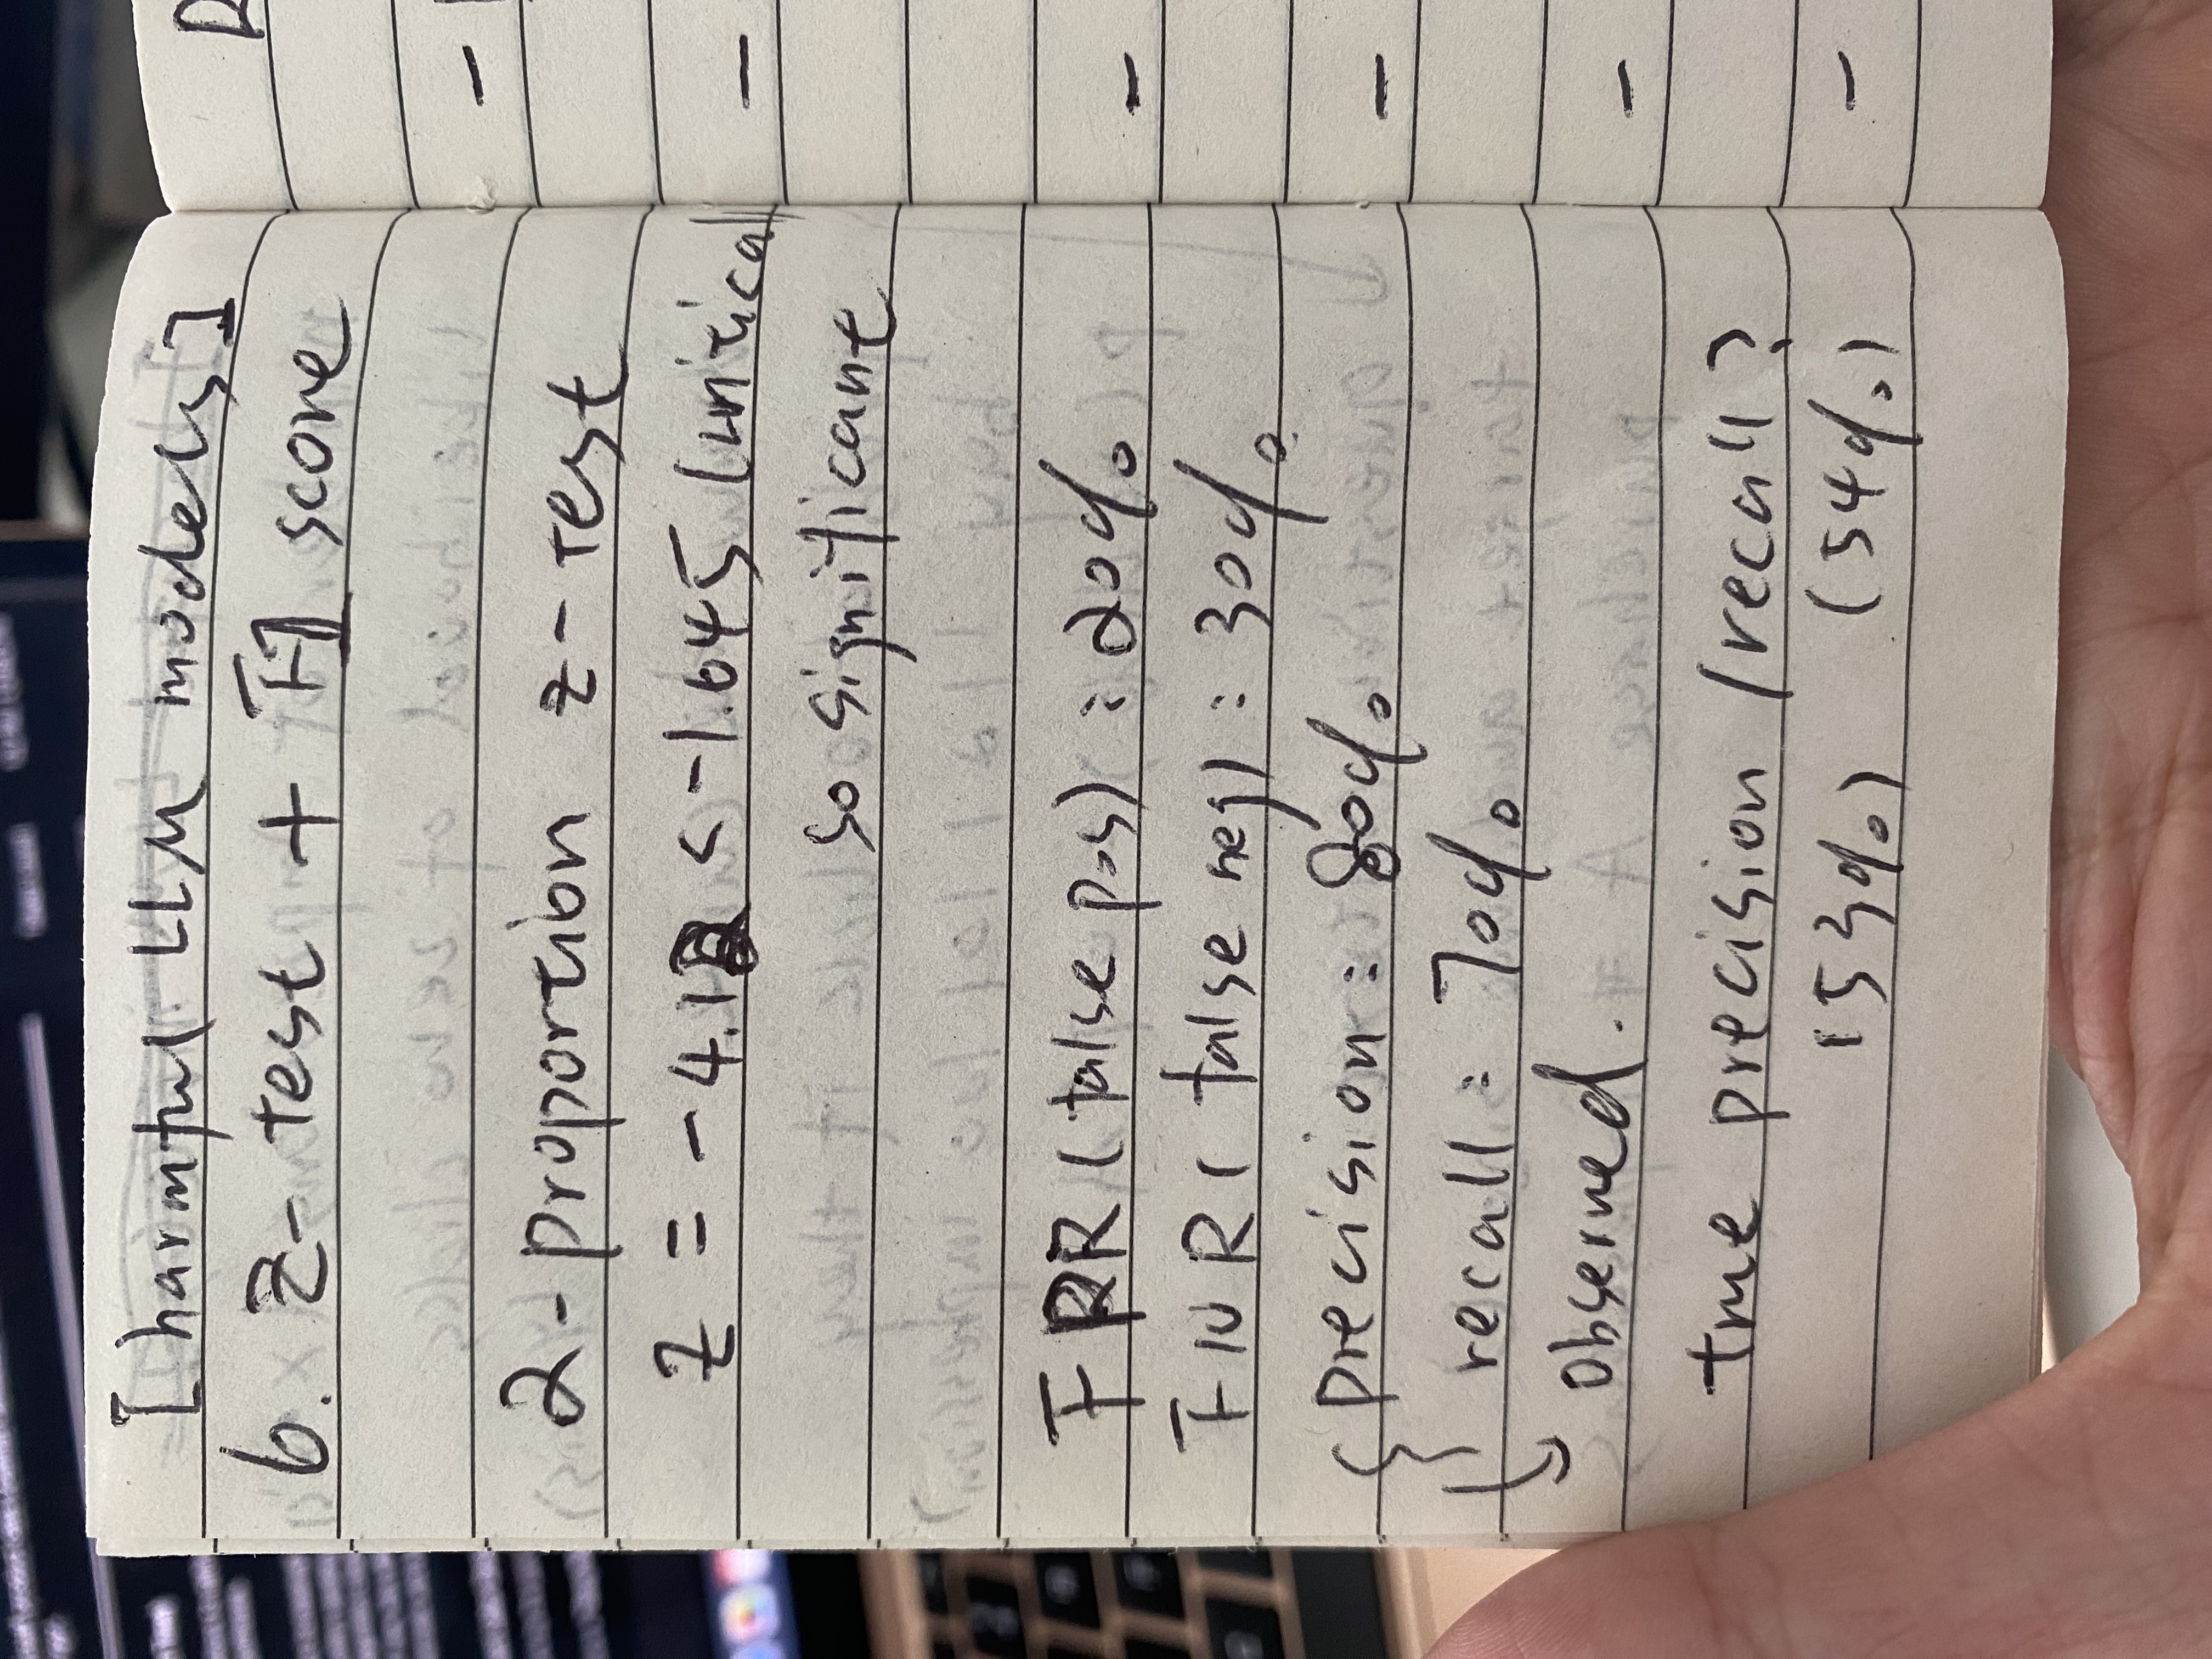 [harmful LLM models]
6. z-test + F1 score
2-proportion z-test
z = -4.12 < -1.645 (critical
so significant
FPR (false pos) : 20%
FNR (false neg) : 30%
precision : 80%
recall : 70%
observed.
true precision / recall ?
(53%) (54%)